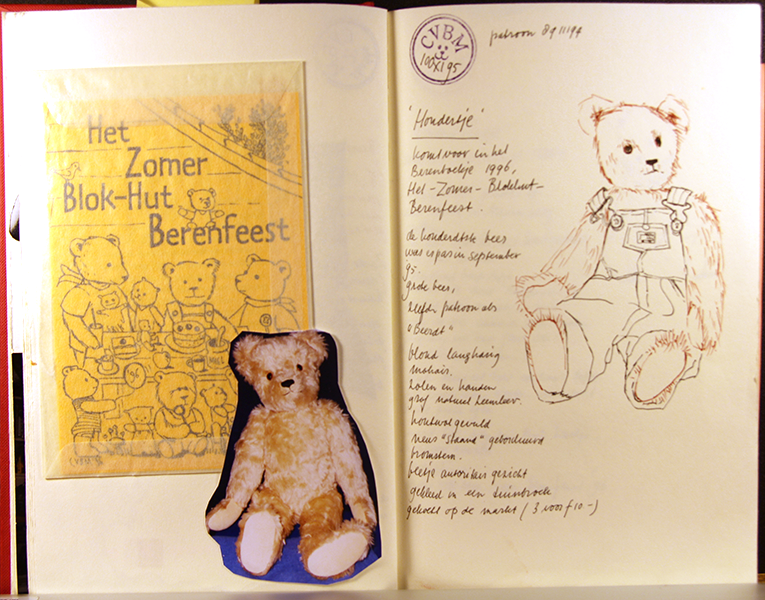 Het
Zomer
Blok-Hut
Berenfeest
CVBM
100X1 95
patroon 29 11 94
"Hondertje"
komt voor in het
Berenboekje 1996,
Het-Zomer-Blokhut-
Berenfeest.
de honderdste beer
was er pas in september
95.
grote beer,
zelfde patroon als
"Beerdt"
blond langharig
mohair.
zolen en handen
grof naturel zeemleer.
houtwol gevuld
neus "staand" geborduurd
bromstem.
beetje autoritair gezicht
gekleed in een tuinbroek
gekocht op de markt (3 voor f 10.-)